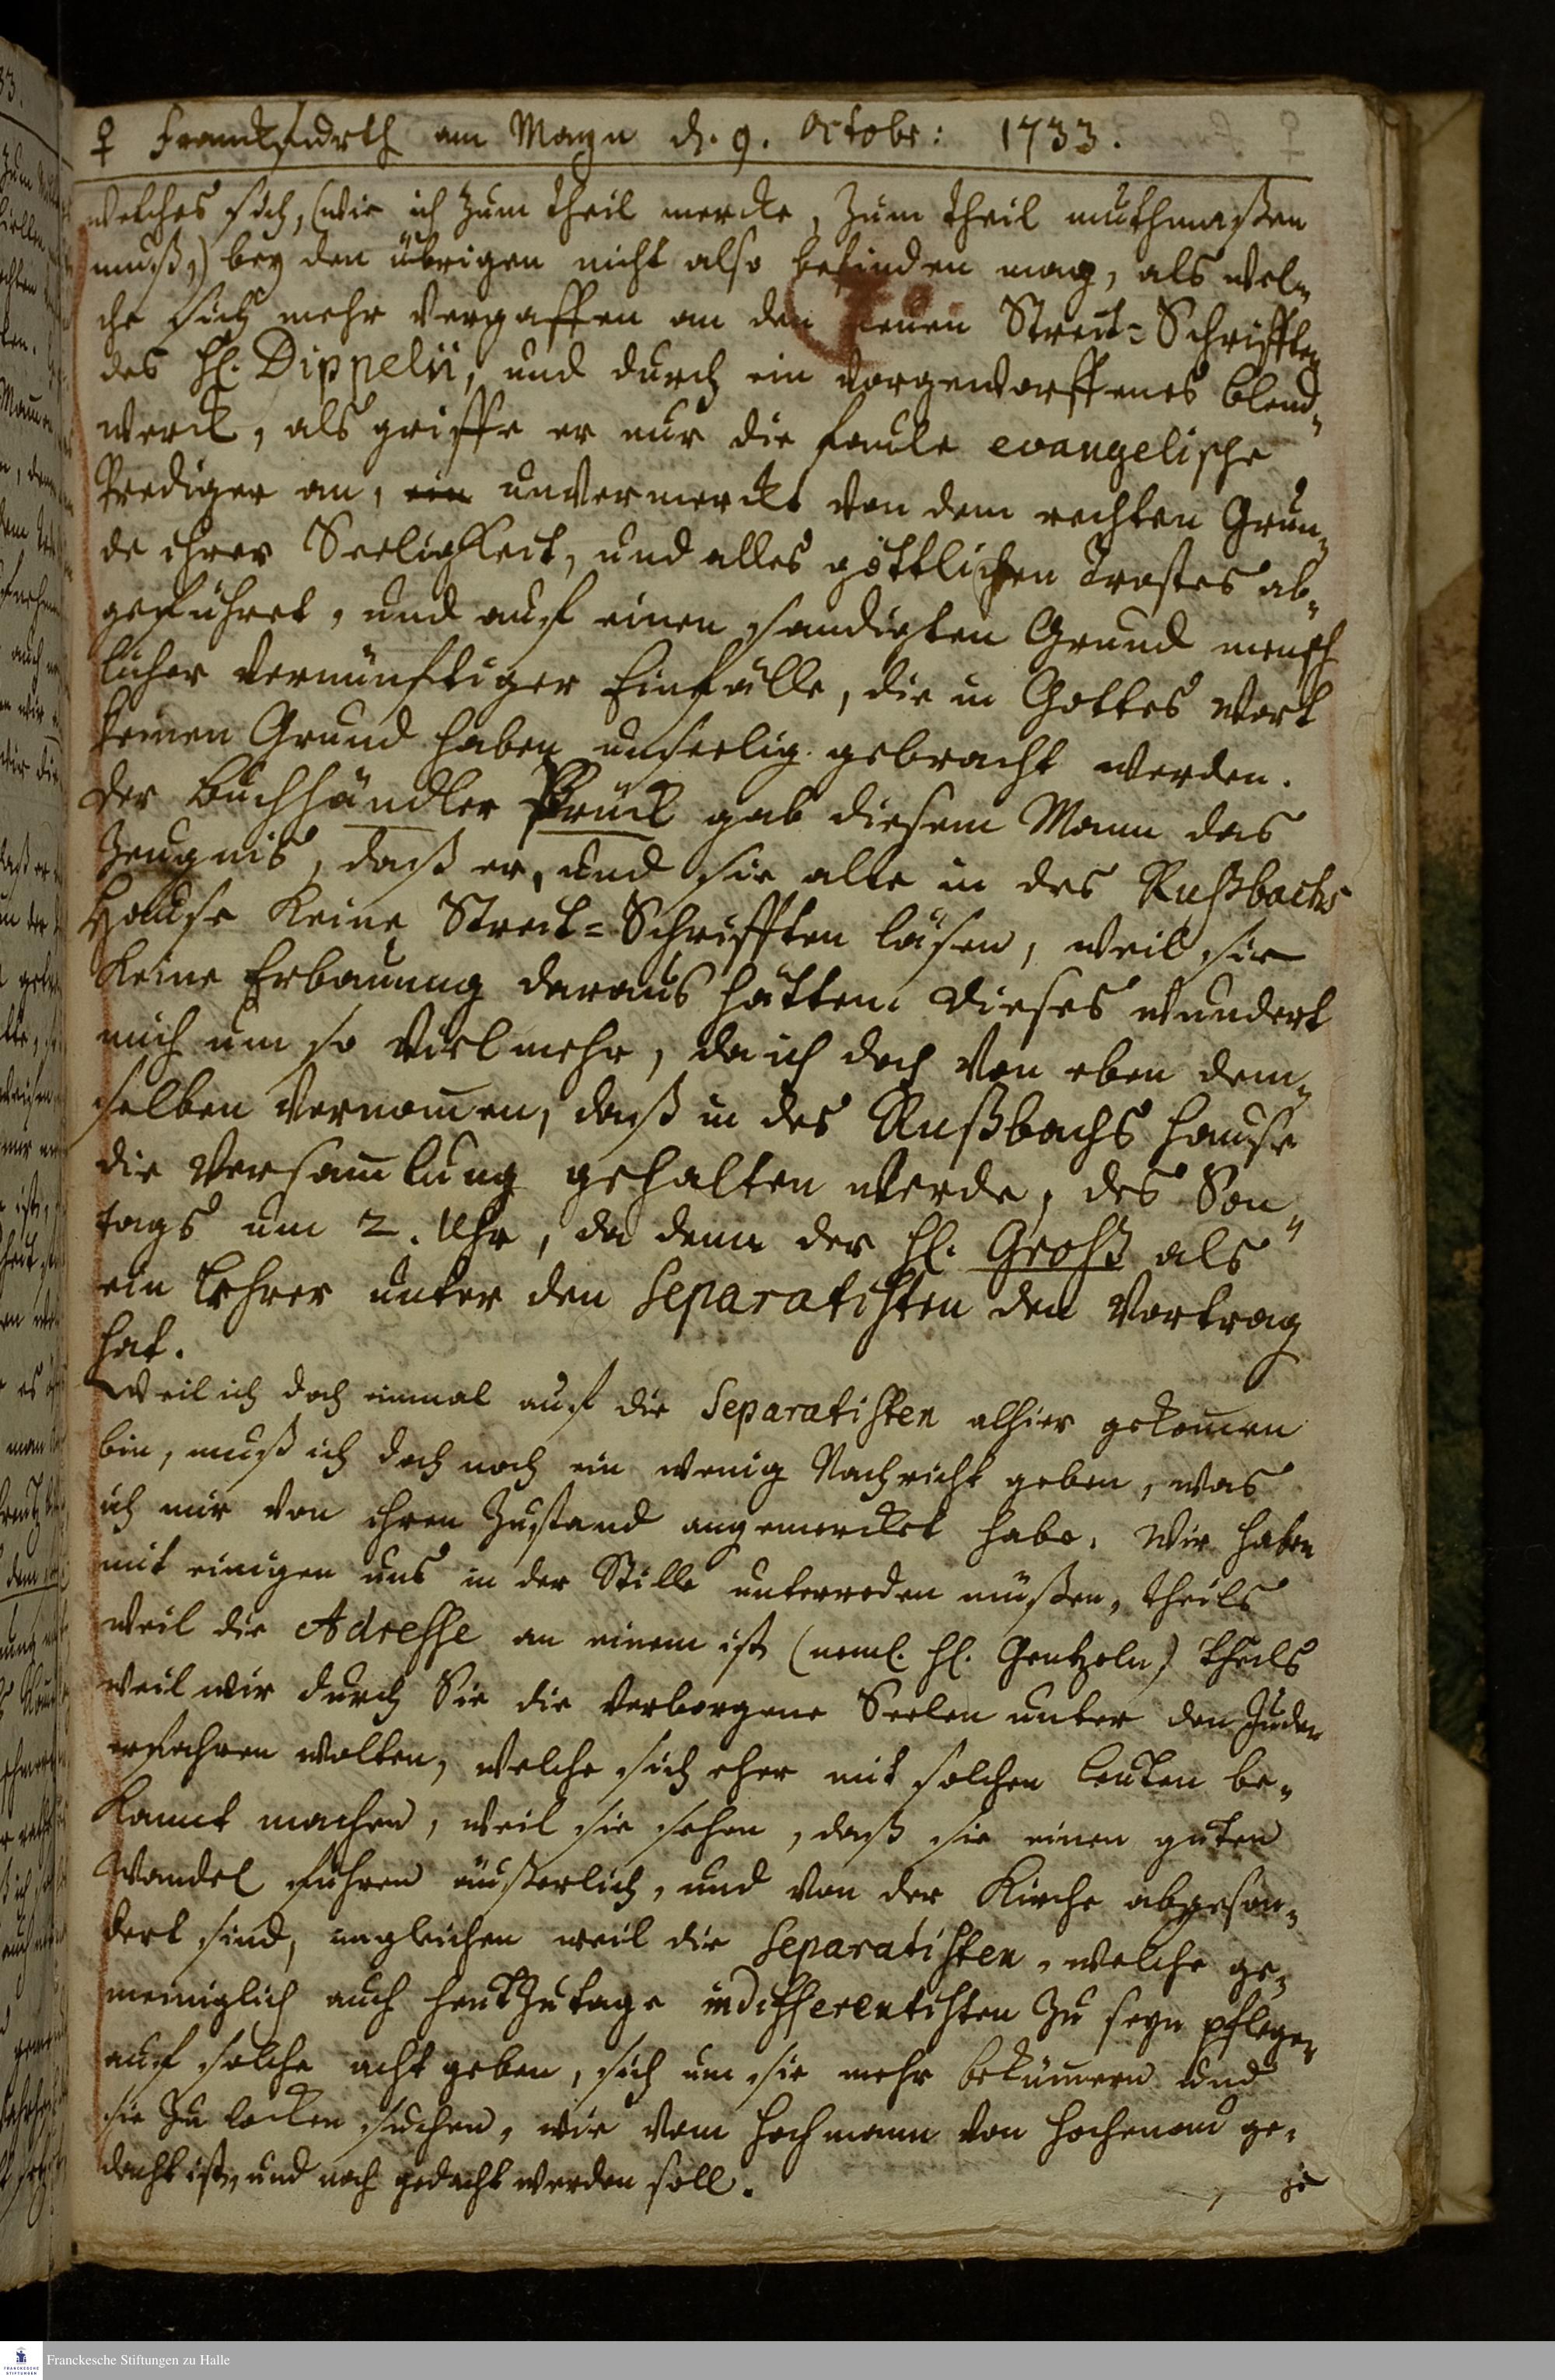 ♀ Franckfurth am Mayn d. 9. Octobr: 1733.
welches sich, (wie ich zum theil mercke, zum theil muthmaßen
muß,) bey den übrigen nicht also befinden mag, als wel-
che sich mehr vergaffen an den neuen Streit-Schrifften
des H. Dippelii, und durch ein vorgeworffenes blend-
werck, als griffe er nur die faule evangelische
Prediger an, ein unvermerckt von dem rechten Grun-
de ihrer Seeligkeit, und alles göttlichen Trostes ab-
geführet, und auf einen sandigten Grund mensch
licher vernünftiger Einfälle, die in Gottes Wort
keinen Grund haben unseelig gebracht werden.
Der buchhändler Brück gab diesem Mann das
Zeugnis, daß er, und sie alle in des Rußbachs
Hause keine Streit-Schrifften läsen, weil sie
keine Erbauung daraus hätten. Dieses wundert
mich um so viel mehr, da ich doch von eben dem-
selben vernom̅en, daß in des Rußbachs Hause
die Versam̅lung gehalten werde, des Son-
tags um 2. Uhr, da denn der H. Groß als
ein Lehrer unter den Separatisten den Vortrag
hat.
Weil ich doch einmal auf die Separatisten alhier gekom̅en
bin, muß ich doch noch ein wenig Nachricht geben, was
ich mir von ihren Zustand angemercket habe. Wir haben
mit einigen uns in der Stille unterreden müßen, theils
weil die Adresse an einem ist (neml. H. Gentzeln) theils
weil wir durch Sie die verborgene Seelen unter den Juden
erfahren wolten, welche sich eher mit solchen Leuten be-
kannt machen, weil sie sehen, daß sie einen guten
Wandel führen äußerlich, und von der Kirche abgeson-
dert sind, ingleichen weil die Separatisten, welche ge-
meiniglich auch heut zu tage indifferentisten zu seyn pflegen
auf solche acht geben, sich um sie mehr beküm̅ern und
sie zu locken suchen, wie vom Hochmann von Hochenau ge-
dacht ist, und noch gedacht werden soll.
Franckesche Stiftungen zu Halle
FRANCKESCHE STIFTUNGEN